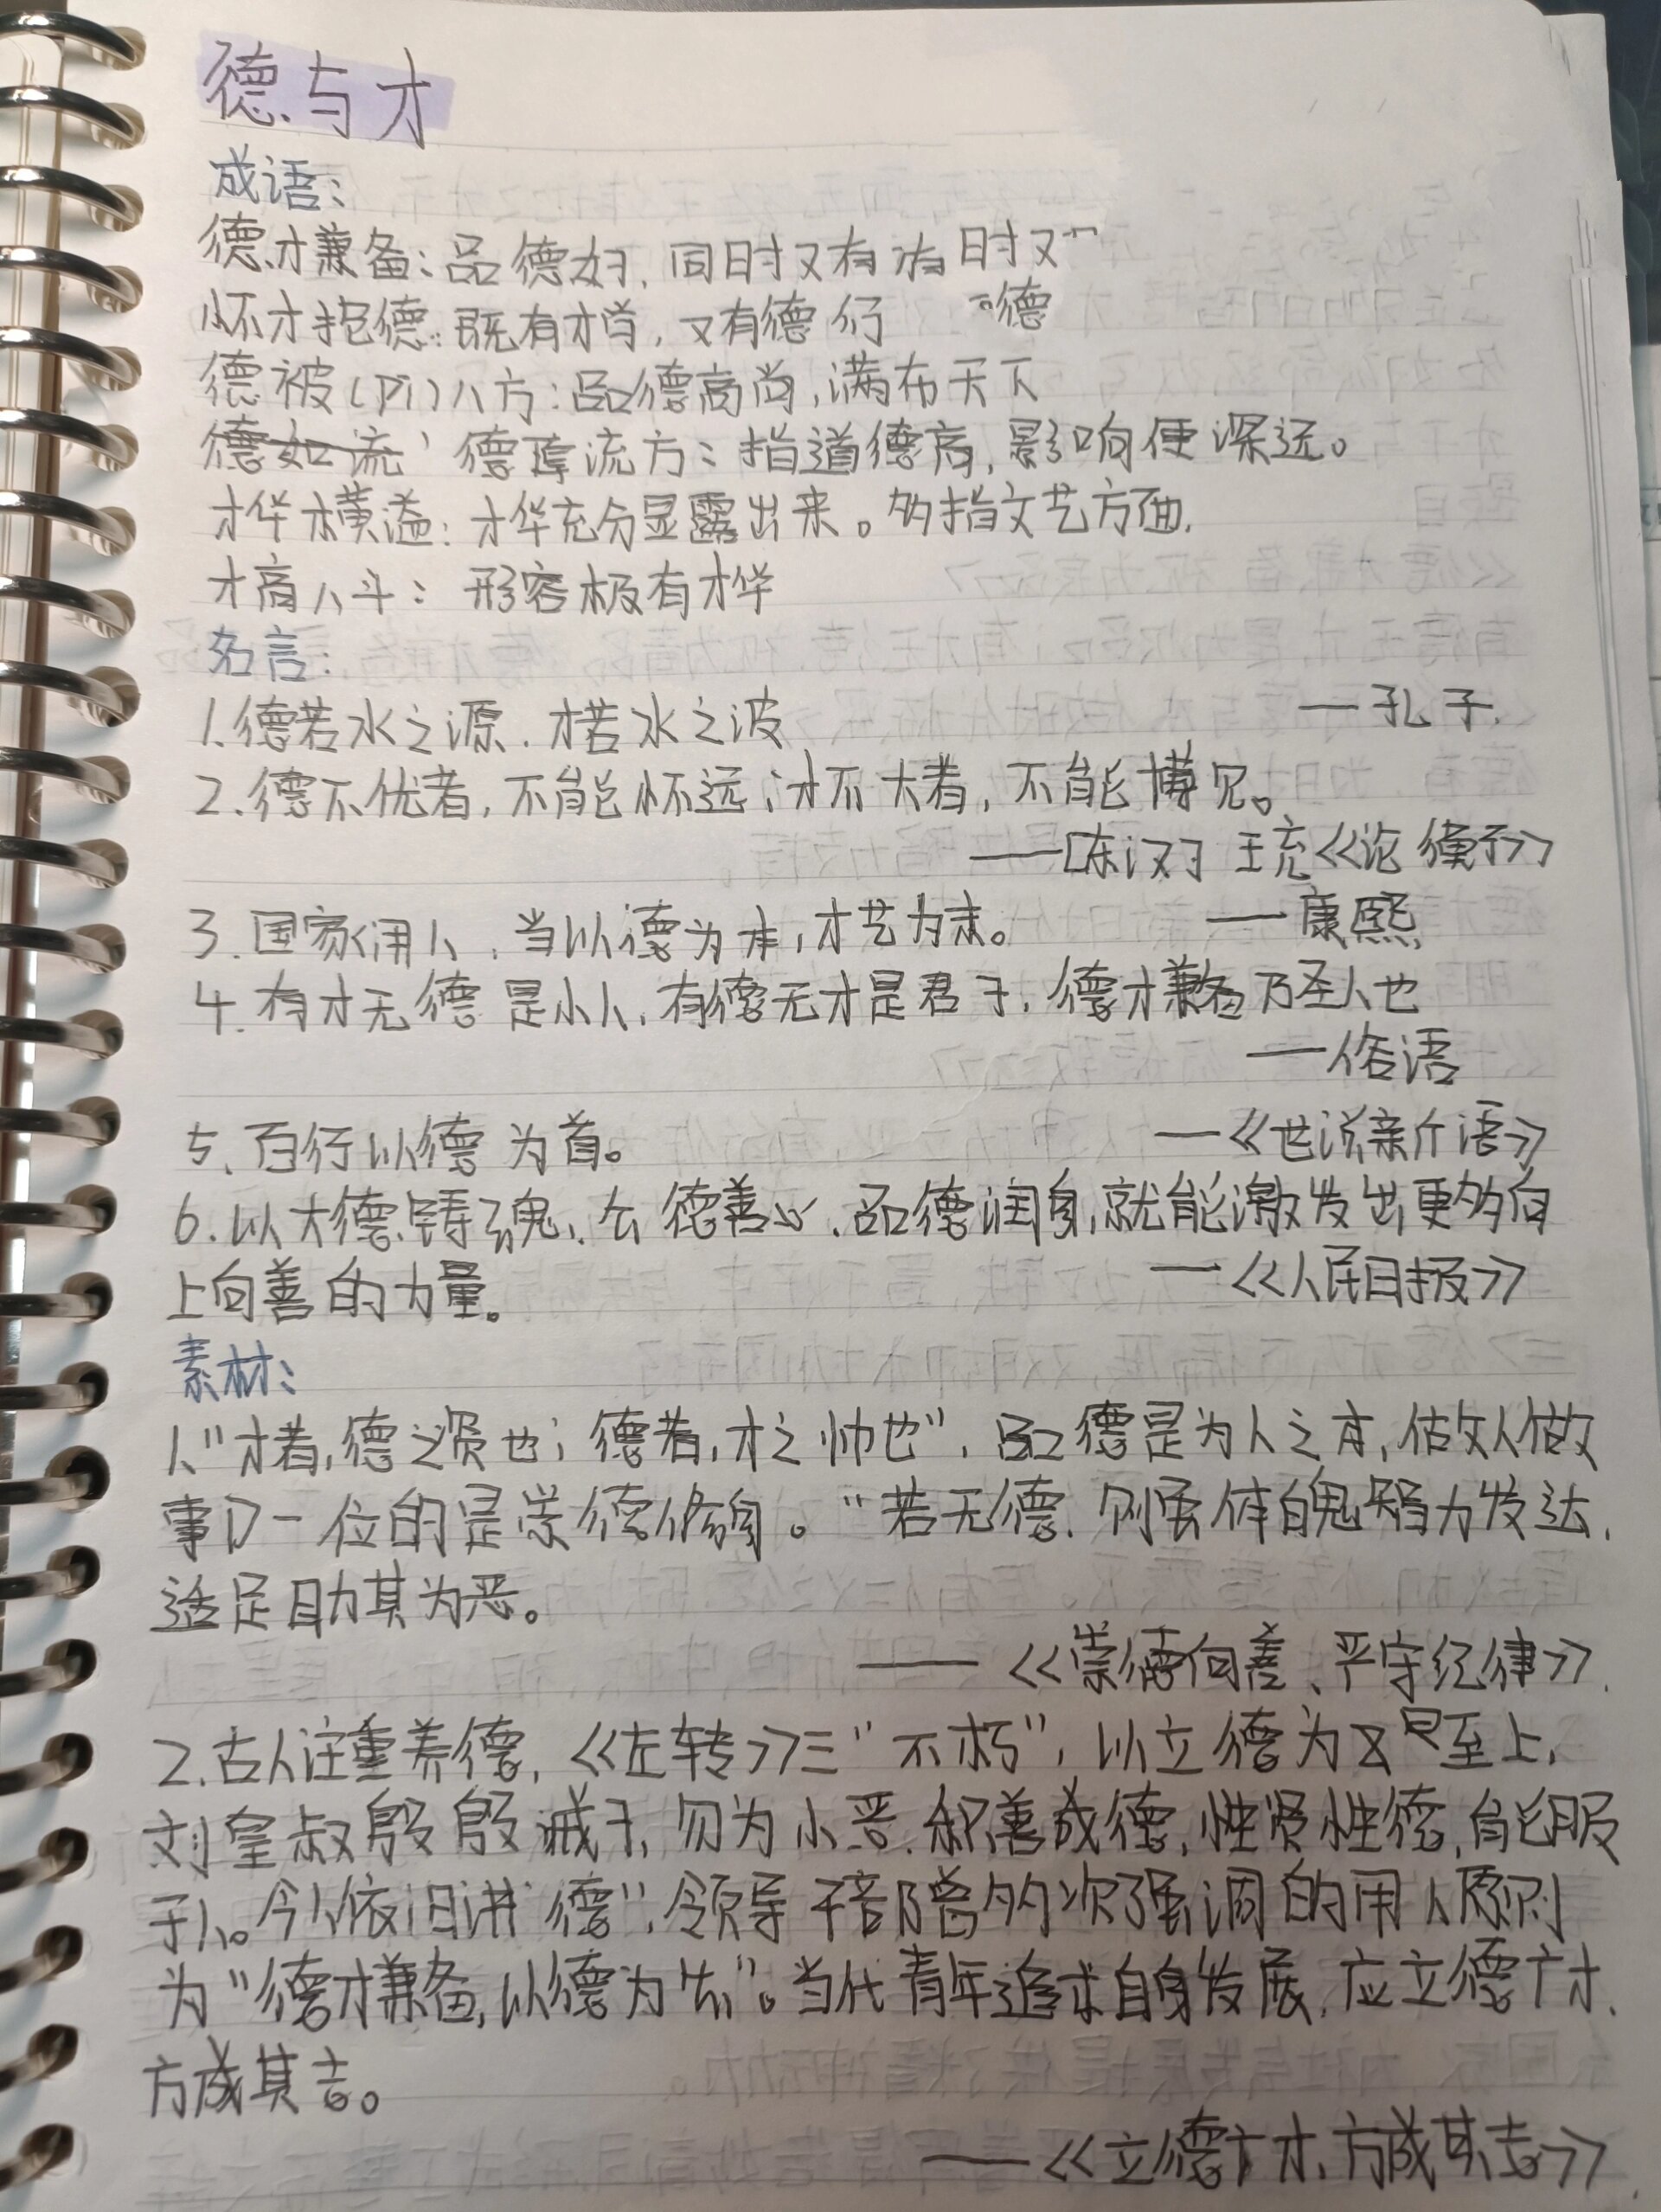 德与才
成语：
德才兼备：品德好，同时又有 时又
怀才抱德：既有才学，又有德行 德
德被(pi)八方：品德高尚，满布天下
德如流 德厚流方：指道德高，影响便深远。
才华横溢：才华充分显露出来。多指文艺方面.
才高八斗：形容极有才华
名言：
1.德若水之源.才若水之波 —孔子.
2.德不优者，不能怀远，才不大者，不能博见。
——[东汉] 王充《论衡》
3.国家用人，当以德为本，才艺为末。 —康熙
4.有才无德是小人，有德无才是君子，德才兼备乃圣人也
—俗语
5、百行以德为首。 —《世说新语》
6.以大德铸魂、公德善心、品德润身，就能激发出更多向
上向善的力量。 —《人民日报》
素材：
1、“才者，德之资也；德者，才之帅也”，品德是为人之本，做人做
事 一位的是崇德修身。“若无德，则虽体魄智力发达，
适足助其为恶。
—— 《崇德向善、严守纪律》.
2.古人注重养德，《左转》三“不朽”，以立德为 至上，
刘皇叔殷殷诫子，勿为小恶.积善成德，惟贤惟德，能服
于人。今人依旧讲“德”，领导干部曾多次强调的用人原则
为“德才兼备，以德为先”。当代青年追求自身发展，应立德 才，
方成其志。
——《立德 才，方成其志》